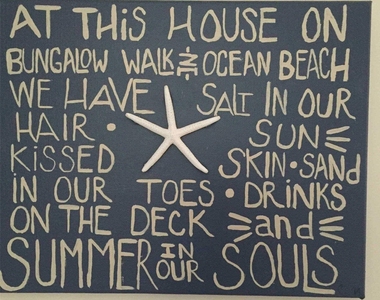 AT THIS HOUSE ON
BUNGALOW WALK IN OCEAN BEACH
WE HAVE SALT IN OUR
HAIR • SUN
KISSED SKIN • SAND
IN OUR TOES • DRINKS
ON THE DECK and
SUMMER IN OUR SOULS